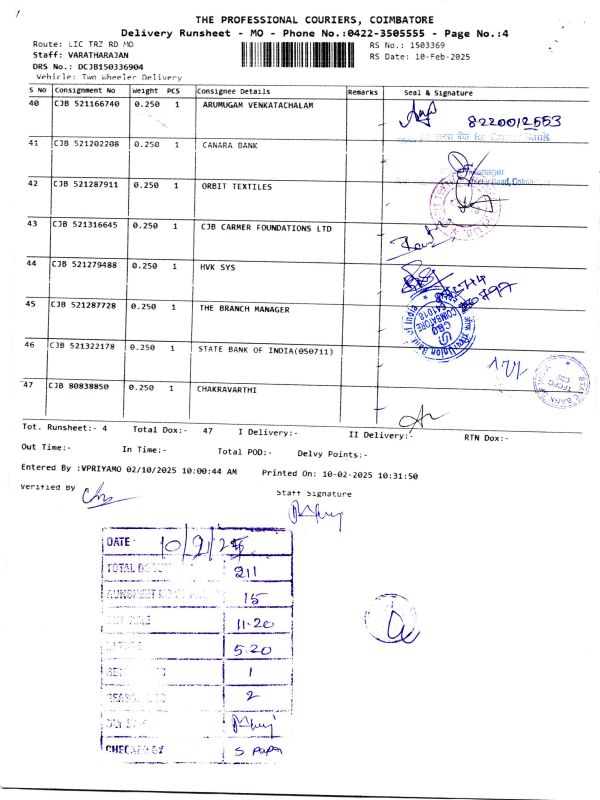 THE PROFESSIONAL COURIERS, COIMBATORE
Delivery Runsheet - MO - Phone No.:0422-3505555 - Page No.:4
Route: LIC TRZ RD MO RS No.: 1503369
Staff: VARATHARAJAN RS Date: 10-Feb-2025
DRS No.: DCJB150336904
Vehicle: Two Wheeler Delivery
S No Consignment No Weight PCS Consignee Details Remarks Seal & Signature
40 CJB 521166740 0.250 1 ARUMUGAM VENKATACHALAM
8220012553
41 CJB 521202208 0.250 1 CANARA BANK
42 CJB 521287911 0.250 1 ORBIT TEXTILES
43 CJB 521316645 0.250 1 CJB CARMER FOUNDATIONS LTD
44 CJB 521279488 0.250 1 HVK SYS
45 CJB 521287728 0.250 1 THE BRANCH MANAGER
46 CJB 521322178 0.250 1 STATE BANK OF INDIA(050711)
47 CJB 80838850 0.250 1 CHAKRAVARTHI
Tot. Runsheet:- 4 Total Dox:- 47 I Delivery:- II Delivery:- RTN Dox:-
Out Time:- In Time:- Total POD:- Delvy Points:-
Entered By :VPRIYAMO 02/10/2025 10:00:44 AM Printed On: 10-02-2025 10:31:50
Verified By Staff Signature
DATE
211
15
11.20
5.20
1
2
CHECKED BY